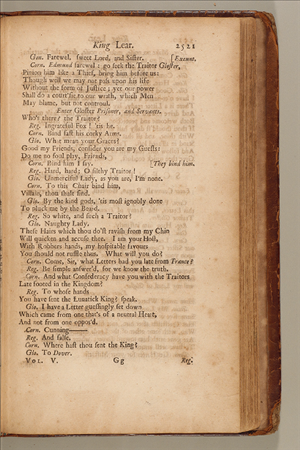 King Lear. 2521
Gon. Farewel, sweet Lord, and Sister. [Exeunt.
Corn. Edmund farewel: go seek the Traitor Gloster,
Pinion him like a Thief, bring him before us:
Though well we may not pass upon his life
Without the form of Justice; yet our power
Shall do a court'sie to our wrath, which Men
May blame, but not controul.
Enter Gloster Prisoner, and Servants.
Who's there? the Traitor?
Reg. Ingrateful Fox! 'tis he.
Corn. Bind fast his corky Arms.
Glo. What mean your Graces?
Good my Friends, consider you are my Guests:
Do me no foul play, Friends.
Corn. Bind him I say. [They bind him.
Reg. Hard, hard: O filthy Traitor!
Glo. Unmerciful Lady, as you are, I'm none.
Corn. To this Chair bind him,
Villain, thou shalt find.
Glo. By the kind gods, 'tis most ignobly done
To pluck me by the Beard.
Reg. So white, and such a Traitor?
Glo. Naughty Lady,
These Hairs which thou do'st ravish from my Chin
Will quicken and accuse thee. I am your Host,
With Robbers hands, my hospitable favours
You should not ruffle thus. What will you do?
Corn. Come, Sir, what Letters had you late from France?
Reg. Be simple answer'd, for we know the truth.
Corn. And what Confederacy have you with the Traitors
Late footed in the Kingdom?
Reg. To whose hands
You have sent the Lunatick King? speak.
Glo. I have a Letter guessingly set down
Which came from one that's of a neutral Heart,
And not from one oppos'd.
Corn. Cunning——
Reg. And false.
Corn. Where hast thou sent the King?
Glo. To Dover.
VOL. V. Gg Reg.